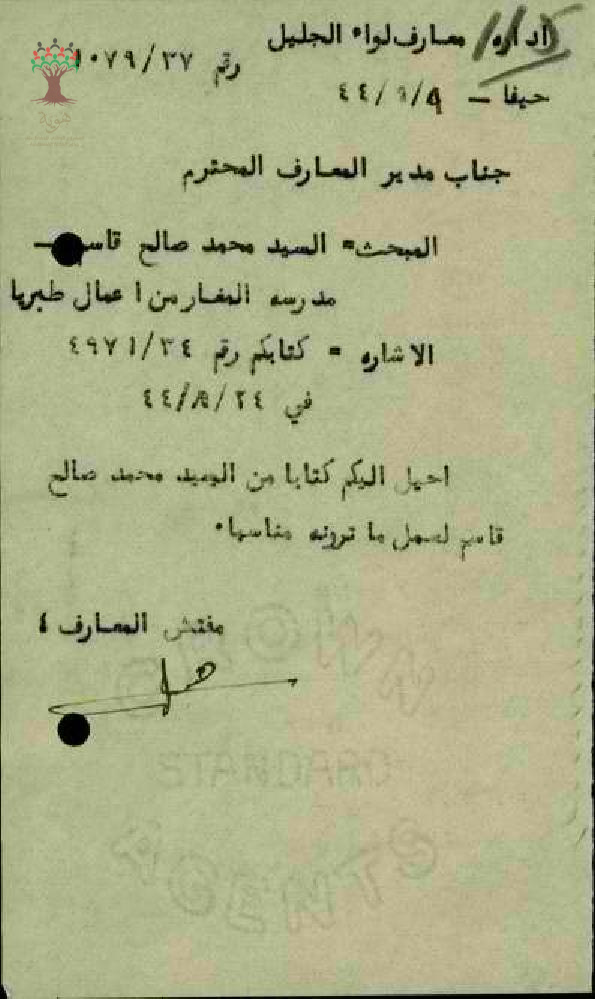 اداره معارف لواء الجليل
رقم ١٠٧٩/٣٧
حيفا – ٤٤/٩/٩
جناب مدير المعارف المحترم
المبحث= السيد محمد صالح قاسم –
مدرسه المغار من اعمال طبريا
الاشاره = كتابكم رقم ٤٩٧١/٣٤
في ٤٤/٨/٢٤
احيل اليكم كتابا من السيد محمد صالح
قاسم لعمل ما ترونه مناسبا٠
مفتش المعارف ٤
CROWN
STANDARD
AGENTS